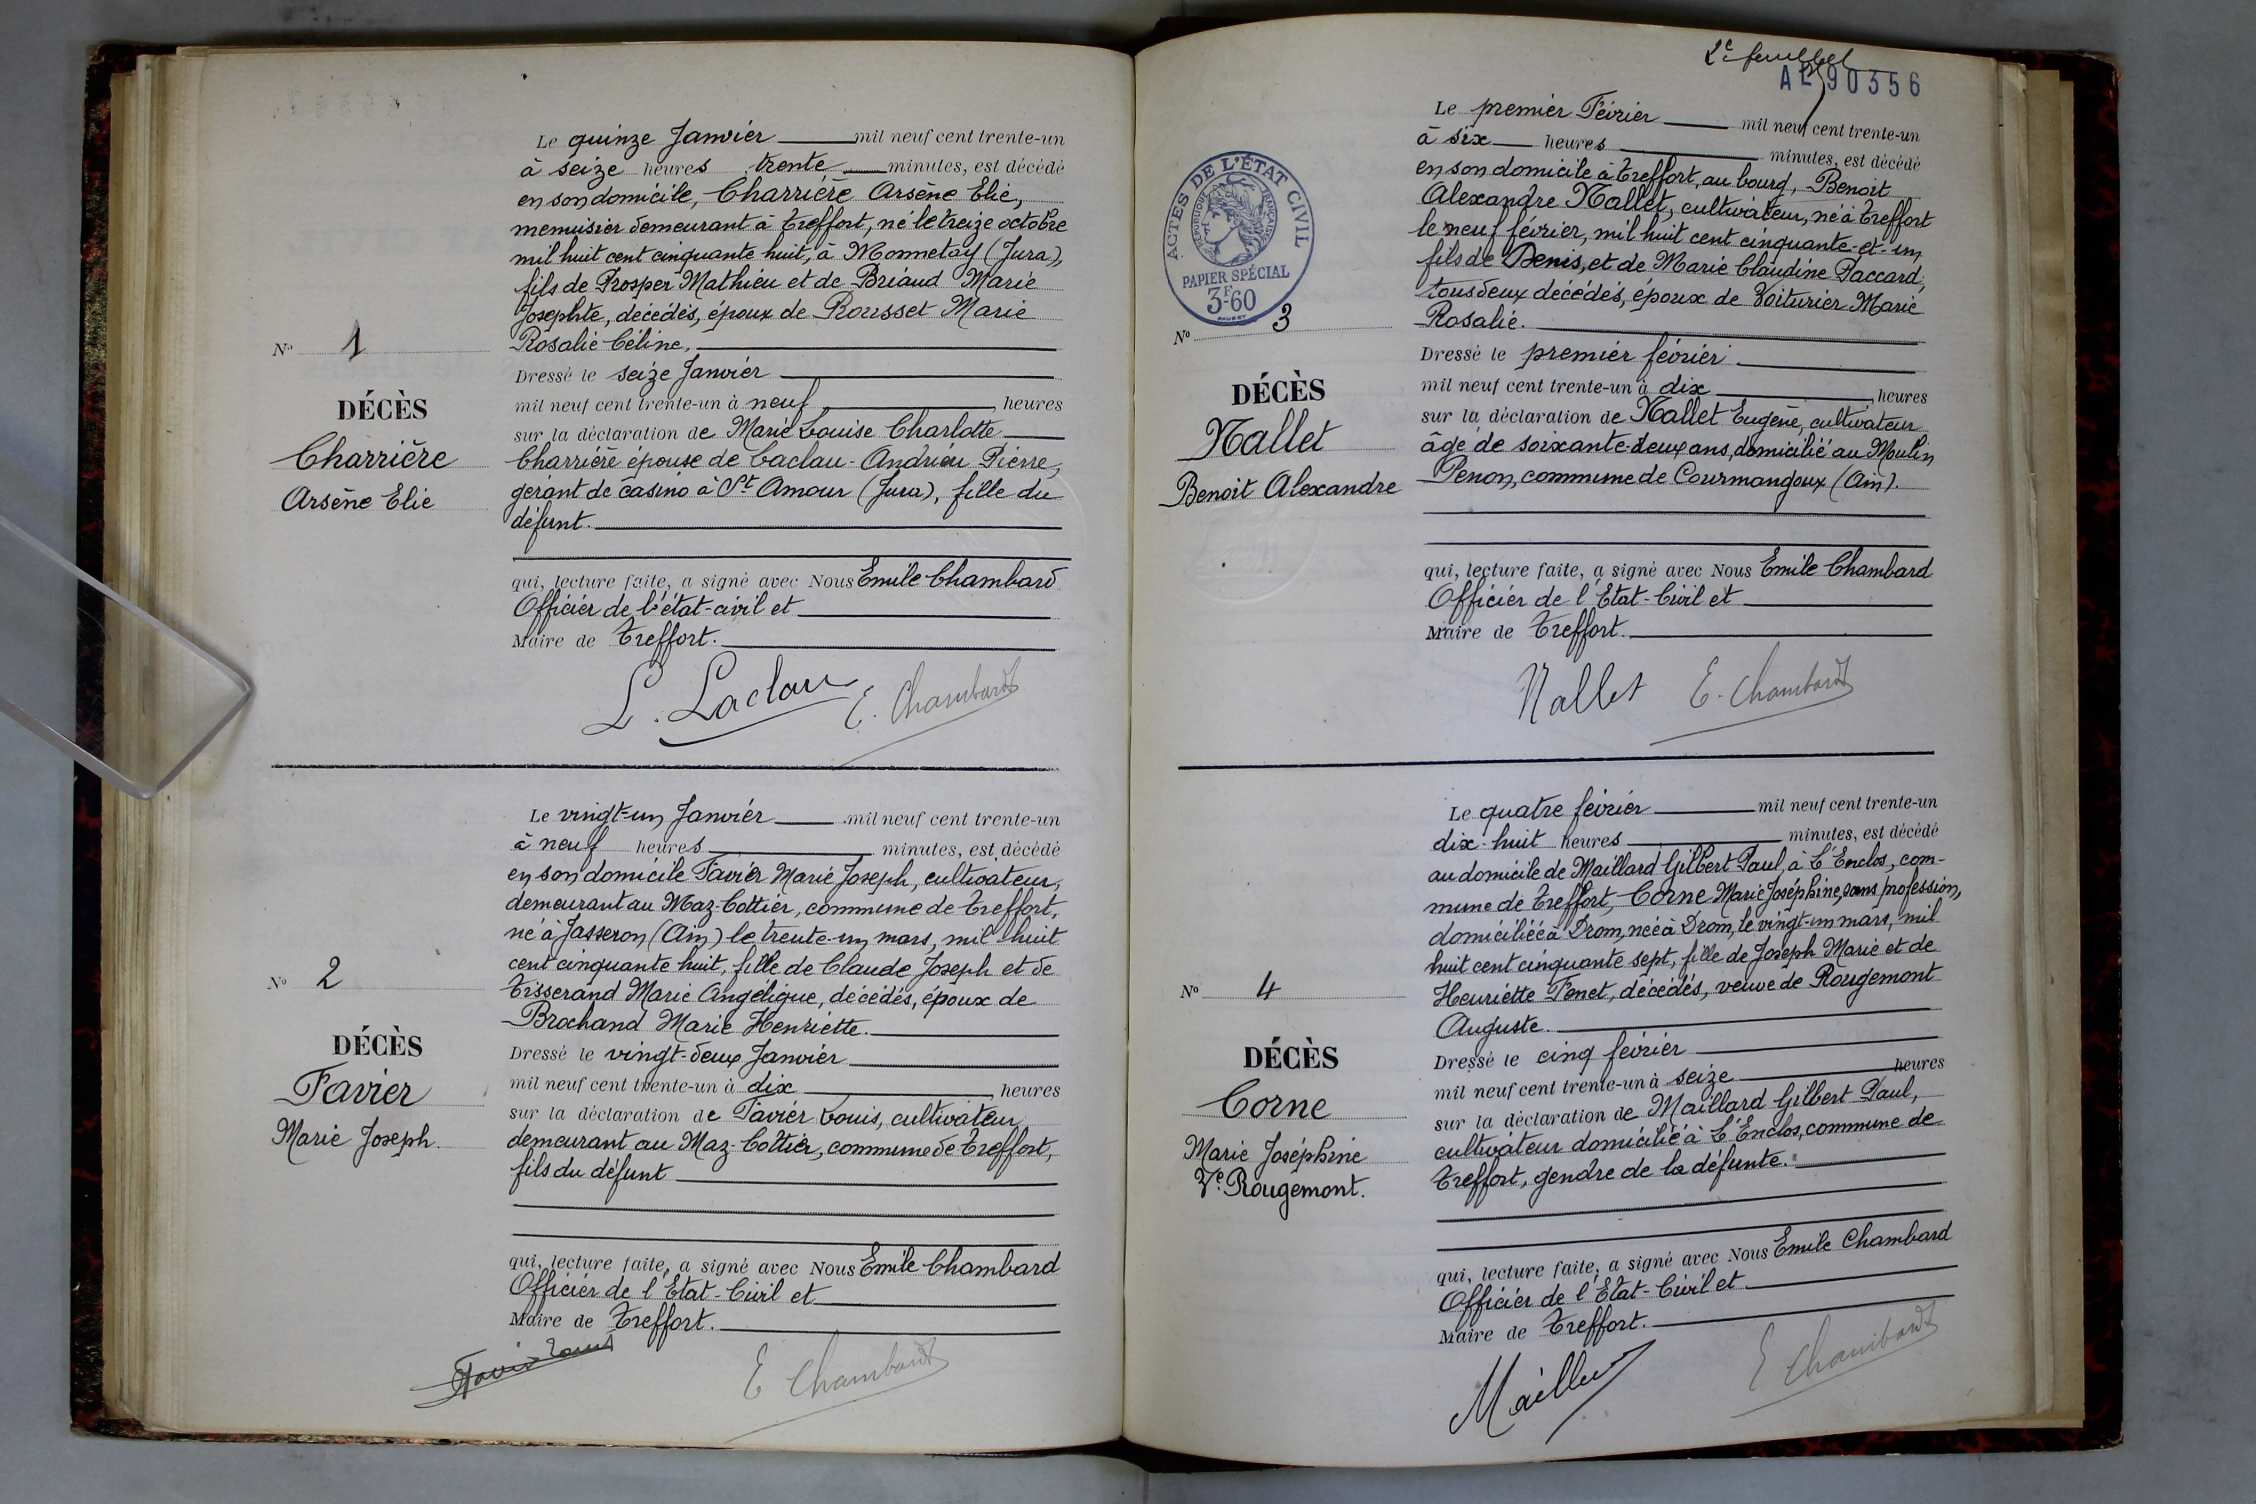 Le quinze Janvier mil neuf cent trente-un
à seize heures trente minutes, est décédé
en son domicile, Charrière Arsène Elie,
menuisier demeurant à Treffort, né le treize octobre
mil huit cent cinquante huit, à Monnetay (Jura),
fils de Prosper Mathieu et de Briaud Marie
Josephte, décédés, époux de Rousset Marie
Rosalie Céline.
Dressé le seize Janvier
mil neuf cent trente-un à neuf heures
sur la déclaration de Marie Louise Charlotte
Charrière épouse de Laclau-Andrieu Pierre,
gérant de casino à St Amour (Jura), fille du
défunt.
qui, lecture faite, a signé avec Nous Emile Chambard
Officier de l'état-civil et
Maire de Treffort.
L. Laclau E. Chambard
No 1
DÉCÈS
Charrière
Arsène Elie
Le vingt-un Janvier mil neuf cent trente-un
à neuf heures minutes, est décédé
en son domicile Favier Marie Joseph, cultivateur,
demeurant au Maz-Cottier, commune de Treffort,
né à Jasseron (Ain) le trente-un mars, mil huit
cent cinquante huit, fille de Claude Joseph et de
Tisserand Marie Angélique, décédés, époux de
Brochand Marie Henriette.
Dressé le vingt-deux Janvier
mil neuf cent trente-un à dix heures
sur la déclaration de Favier Louis, cultivateur
demeurant au Maz-Cottier, commune de Treffort,
fils du défunt
qui, lecture faite, a signé avec Nous Emile Chambard
Officier de l'Etat-Civil et
Maire de Treffort.
Favier Louis E Chambard
No 2
DÉCÈS
Favier
Marie Joseph.
2e feuillet
AL 90356
ACTES DE L'ÉTAT CIVIL
RÉPUBLIQUE FRANÇAISE
PAPIER SPÉCIAL
3F60
Le premier Février mil neuf cent trente-un
à six heures minutes, est décédé
en son domicile à Treffort, au bourg, Benoit
Alexandre Nallet, cultivateur, né à Treffort
le neuf février, mil huit cent cinquante-et-un
fils de Denis, et de Marie Claudine Paccard,
tous deux décédés, époux de Voiturier Marie
Rosalie.
Dressé le premier février
mil neuf cent trente-un à dix heures
sur la déclaration de Nallet Eugène, cultivateur
âgé de soixante-deux ans, domicilié au Moulin
Penon, commune de Courmangoux (Ain).
qui, lecture faite, a signé avec Nous Emile Chambard
Officier de l'Etat-Civil et
Maire de Treffort.
Nallet E. Chambard
No 3
DÉCÈS
Nallet
Benoit Alexandre
Le quatre février mil neuf cent trente-un
dix-huit heures minutes, est décédé
au domicile de Maillard Gilbert Paul, à L'Enclos, com-
mune de Treffort, Corne Marie Joséphine, sans profession,
domiciliée à Drom, née à Drom, le vingt-un mars, mil
huit cent cinquante sept, fille de Joseph Marie et de
Henriette Fenet, décédés, veuve de Rougemont
Auguste.
Dressé le cinq février
mil neuf cent trente-un à seize heures
sur la déclaration de Maillard Gilbert Paul,
cultivateur domicilié à L'Enclos, commune de
Treffort, gendre de la défunte.
qui, lecture faite, a signé avec Nous Emile Chambard
Officier de l'Etat-Civil et
Maire de Treffort.
E Chambard
No 4
DÉCÈS
Corne
Marie Joséphine
Ve Rougemont.